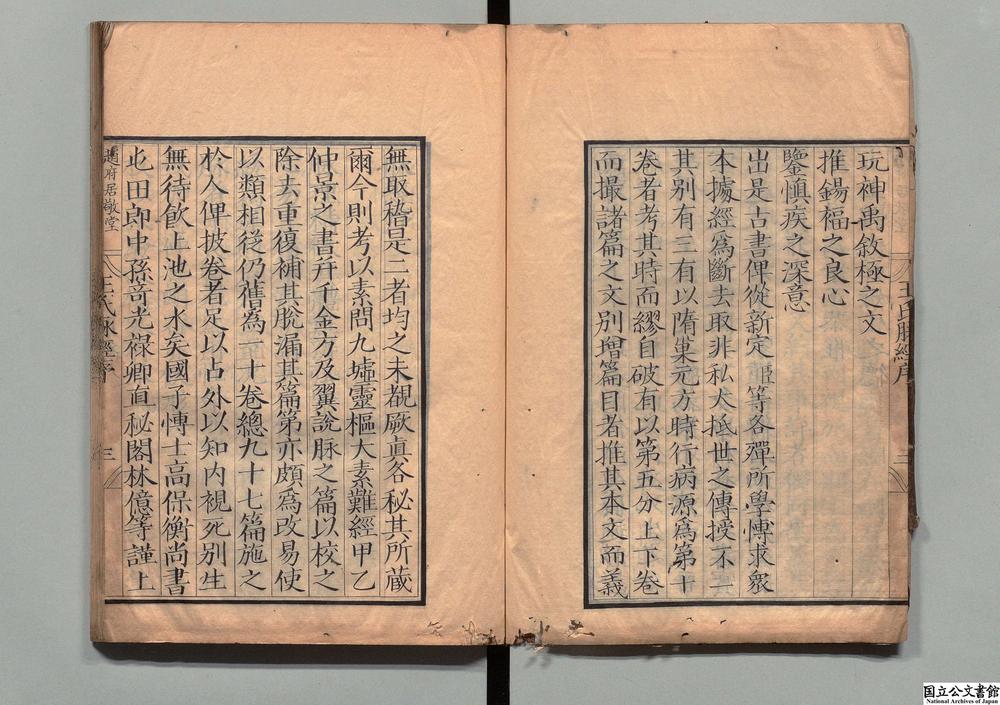 玩神禹敘極之文
推錫福之良心
鑒慎疾之深意
出是古書俾從新定臣等各殫所學愽求衆
本據經為斷去取非私大抵世之傳授不一
其别有三有以隋巢元方時行病源為第十
卷者考其時而繆自破有以第五分上下卷
而撮諸篇之文别增篇目者推其本文而義
王氏脉經序
三
無取稽是二者均之未覩厥真各秘其所藏
爾今則考以素問九墟靈樞太素難經甲乙
仲景之書并千金方及翼說脉之篇以校之
除去重復補其脫漏其篇第亦頗為改易使
以類相從仍舊為一十卷總九十七篇施之
於人俾披卷者足以占外以知内視死别生
無待飲上池之水矣國子愽士高保衡尚書
屯田郎中孫奇光禄卿直秘閣林億等謹上
趙府居敬堂
王氏脉經序
三
国立公文書館
National Archives of Japan